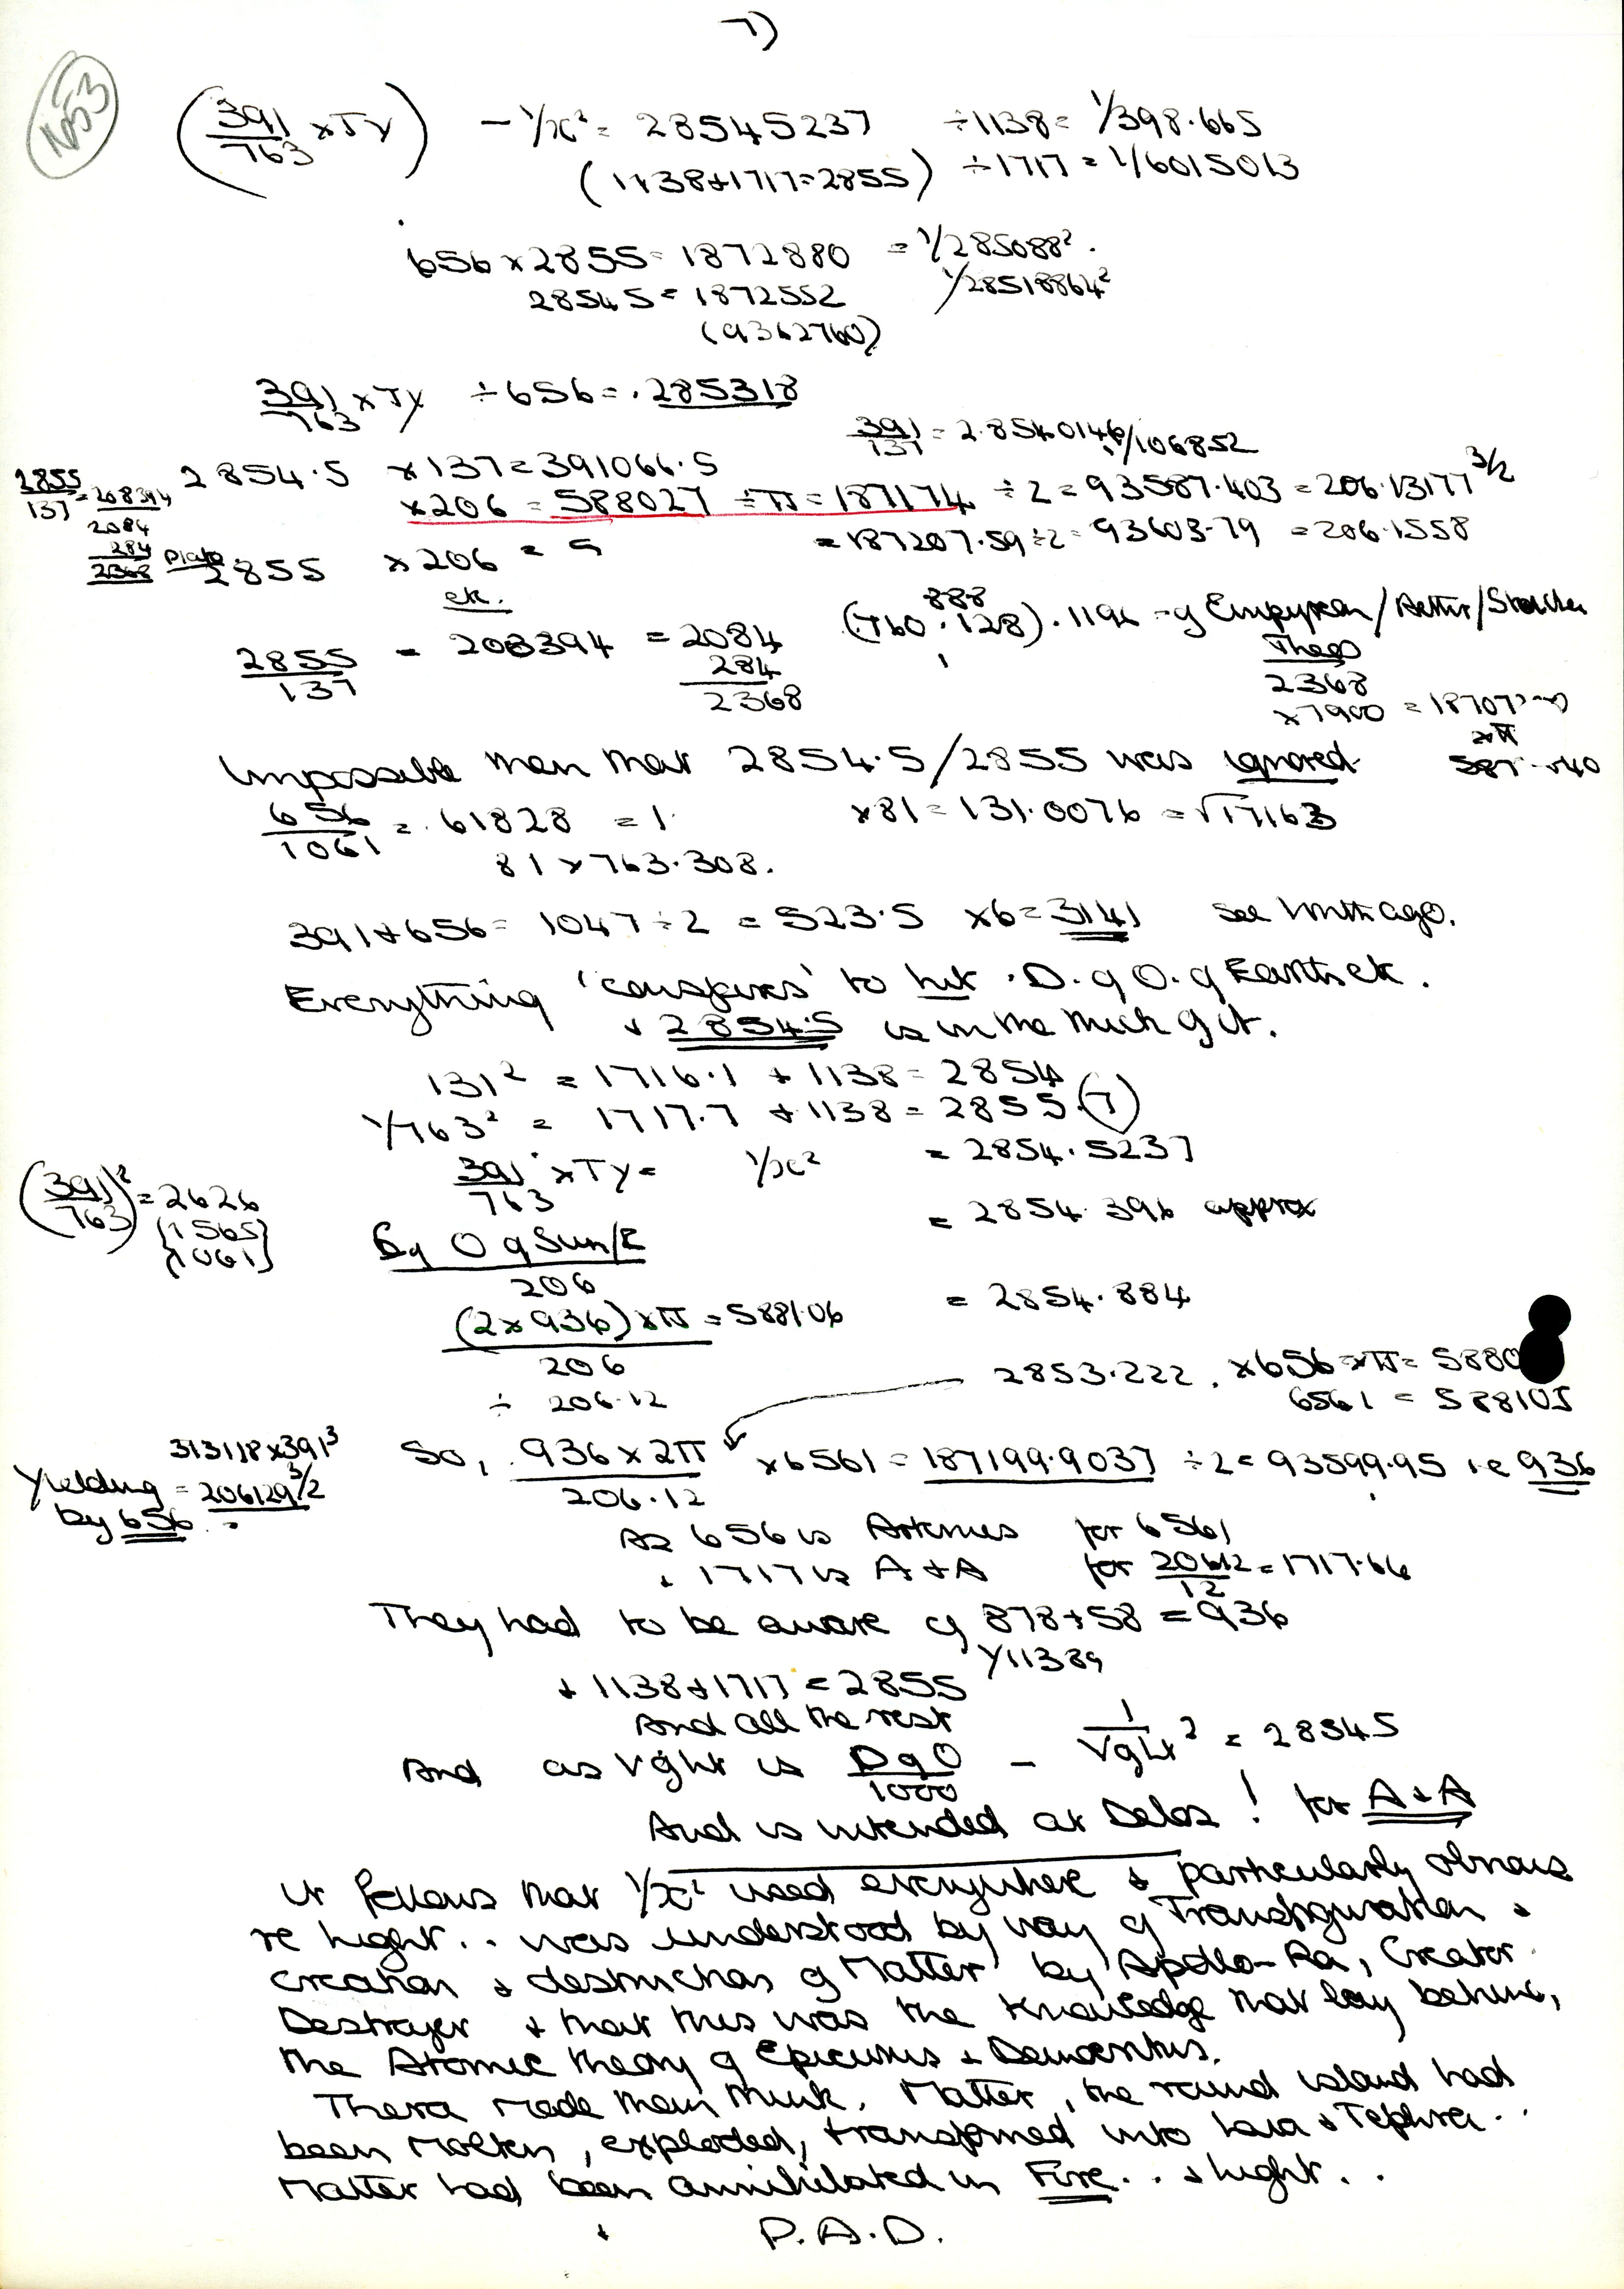 7)
No53
(391/763 x Ty) – 1/x² = 28545237 ÷1138 = 1/398.665
(1138+1717=2855) ÷1717 = 1/6015013
656 x 2855 = 1872880 = 1/285088².
28545 = 1872552 1/28518864²
(9362760)
391/763 x Ty ÷656 = .285318
391/137 = 2.8540146 1/106852
2854.5 x137 = 391066.5
x206 = 588027 ÷π = 187174 ÷2 = 93587.403 = 206.13177 3/2
= 187207.59 ÷2 = 93603.79 = 206.1558
2855 x206 = "
etc.
2855/137 = 208394
2084
284
2368 Plato
2855/137 = 208394 = 2084
284
2368
888
(760.128).1196
Thera
2368
x7900 = 18707
xπ
Impossible then that 2854.5/2855 was ignored
656/1061 = .61828 = 1 x81 = 131.0076 = √17163
81 x 763.308.
391+656 = 1047 ÷2 = 523.5 x6 = 3141 see month ago.
Everything 'conspires' to hit .D. g O. g Earth etc.
+ 2854.5 is in the thick g it.
131² = 1716.1 + 1138 = 2854
1/763² = 1717.7 + 1138 = 2855.(7)
391/763 x Ty = 1/x² = 2854.5237
(391/763)² = 2626
{1565}
{1061}
= 2854.396 approx
Eq O g Sun/E
206
= 2854.884
(2x936) x π = 588106
206
÷ 206.12
2853.222. x656 xπ = 5880
6561 = 588105
313118 x 391³
Yielding = 206129 3/2
by 656
So, 936 x 2π/206.12 x6561 = 187199.9037 ÷2 = 93599.95 i.e 936
As 656 is Artemis for 6561
+ 1717 is A+A for 20612/12 = 1717.66
They had to be aware g 878+58 = 936
1/11389
+ 1138+1717 = 2855
And all the rest
And as V g Lt is D g O/1000 – 1/V g Lt² = 28545
And is intended at Delos! for A+A
It follows that 1/x² used everywhere & particularly obvious
re light.. was understood by way g Transfiguration &
creation & destruction g Matter by Apollo-Ra, Creator
Destroyer + that this was the knowledge that lay behind,
the Atomic theory g Epicurus & Democritus.
Thera made them think. Matter, the round island had
been molten, exploded, transformed into lava & Tephra..
Matter had been annihilated in Fire.. & light..
P.A.D.